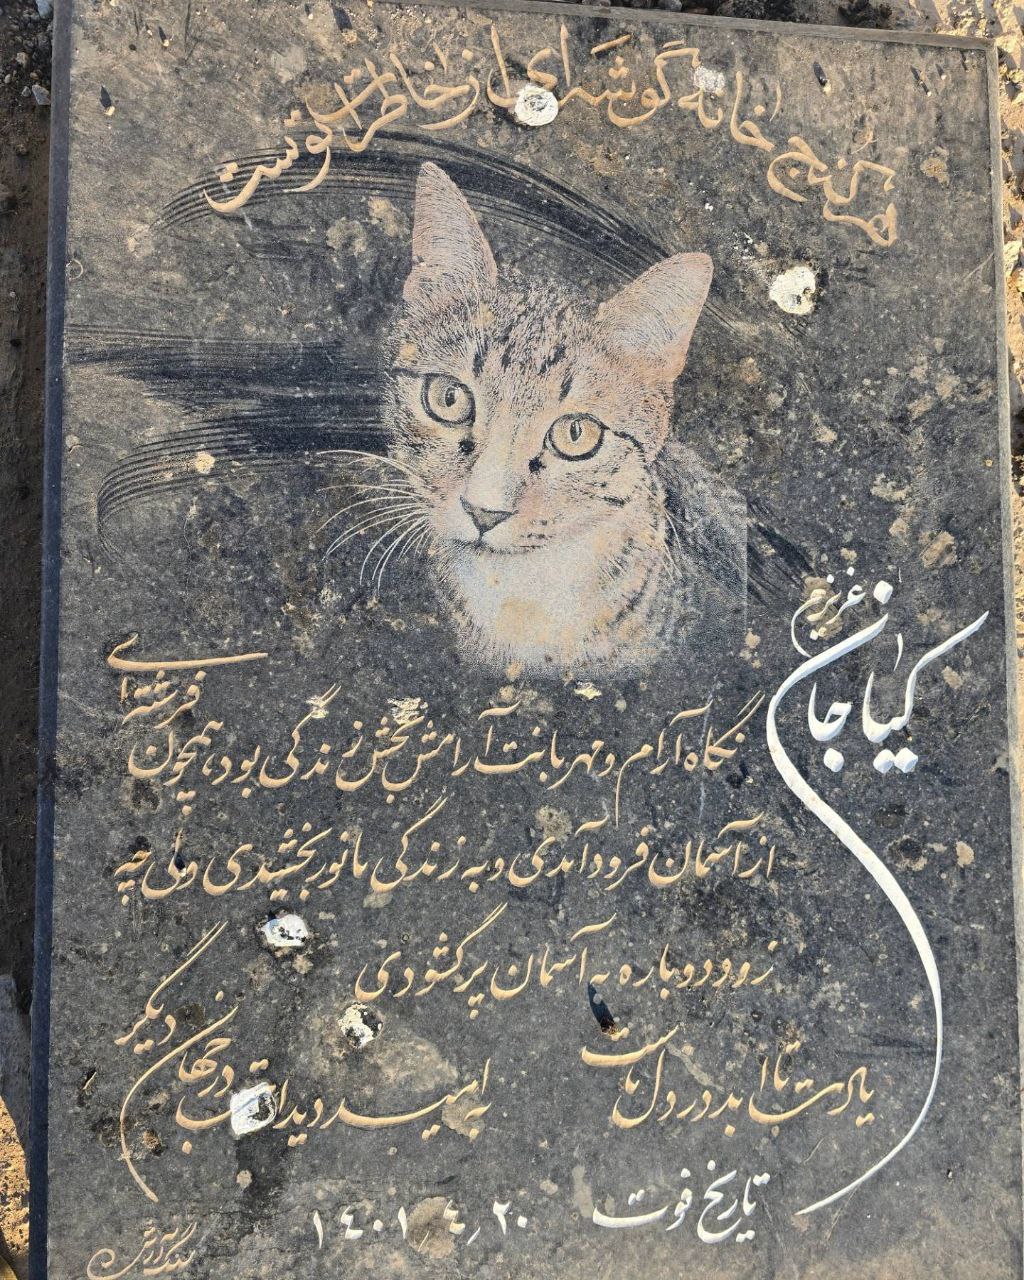 هر کنج خانه گوشه‌ای از خاطرات توست
عزیزم
کیان جان
نگاه آرام و مهربانت آرامش بخش زندگی بود، همچون فرشته ای
از آسمان فرود آمدی و به زندگی ما نور بخشیدی ولی چه
زود دوباره به آسمان پر گشودی
یادت تا ابد در دل ماست
به امید دیدارت در جهان دیگر
تاریخ فوت
۱۴۰۱,۴,۲۰